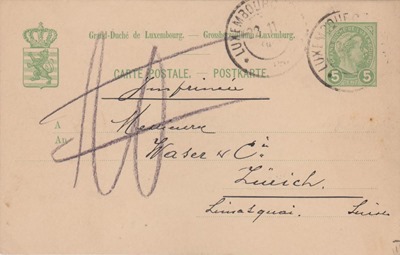 Grand-Duché de Luxembourg. — Großherzogthum Luxemburg.
LUXEMBOURG
LUXEMBOURG
CARTE POSTALE. — POSTKARTE.
5 5
Imprimés
A
An
Messieurs
Waser & Cie
Zürich.
Limmatquai. Suisse